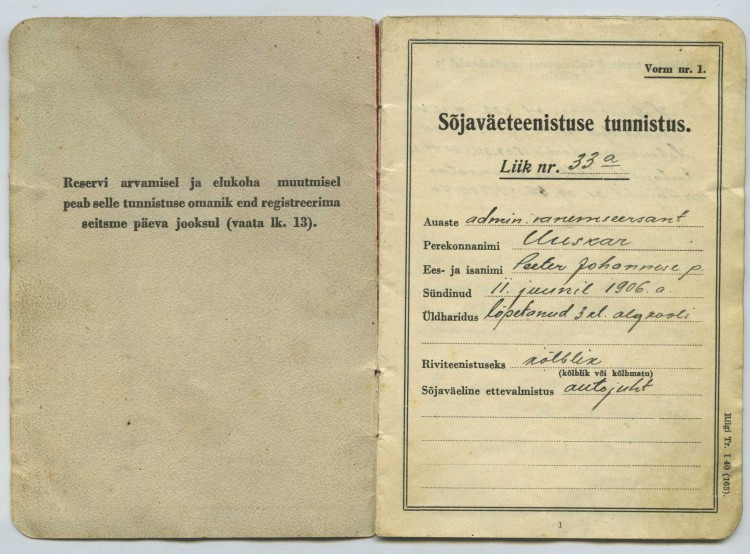 Reservi arvamisel ja elukoha muutmisel
peab selle tunnistuse omanik end registreerima
seitsme päeva jooksul (vaata lk. 13).
Vorm nr. 1.
Sõjaväeteenistuse tunnistus.
Liik nr. 33a
Auaste admin. vanemseersant
Perekonnanimi Uuskar
Ees- ja isanimi Peeter Johannese p.
Sündinud 11. juunil 1906. a.
Üldharidus lõpetanud 3 kl. algkooli
Riviteenistuseks kõlblik
(kõlblik või kõlbmatu)
Sõjaväeline ettevalmistus autojuht
Riigi Tr. I 40 (163).
1